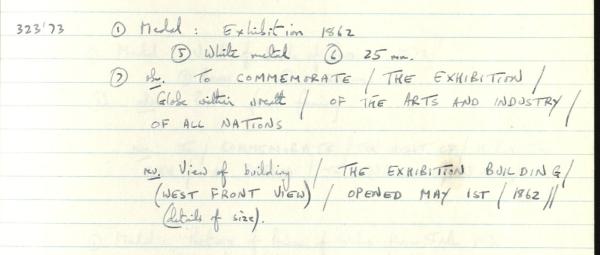 323'73 ① Medal : Exhibition 1862
⑤ White metal ⑥ 25 mm.
⑦ obv. TO COMMEMORATE / THE EXHIBITION /
Globe within wreath / OF THE ARTS AND INDUSTRY /
OF ALL NATIONS
rev. View of building / THE EXHIBITION BUILDING /
(WEST FRONT VIEW) / OPENED MAY 1ST / 1862 //
(details of size).